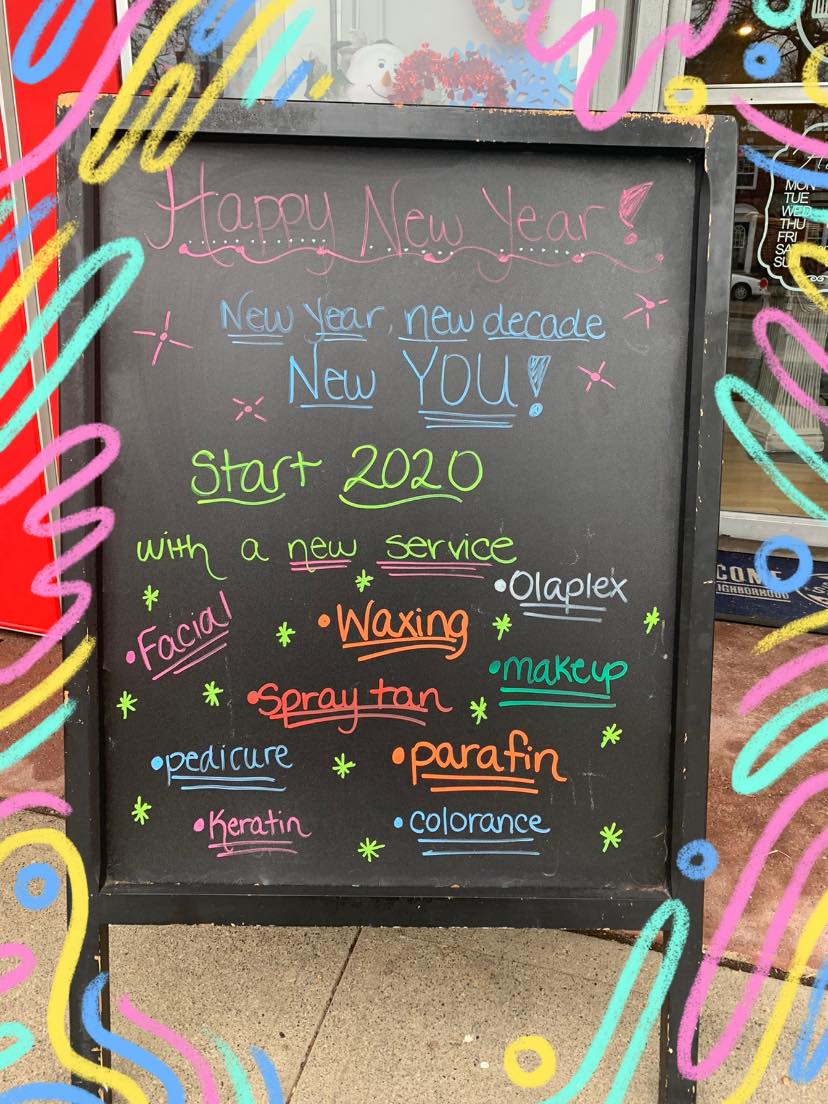 Happy New Year!
New Year, new decade
New YOU!
Start 2020
with a new service
•Olaplex
•Facial
•Waxing
•makeup
•Spray tan
•pedicure
•parafin
•Keratin
•colorance
MON
TUE
WED
THU
FRI